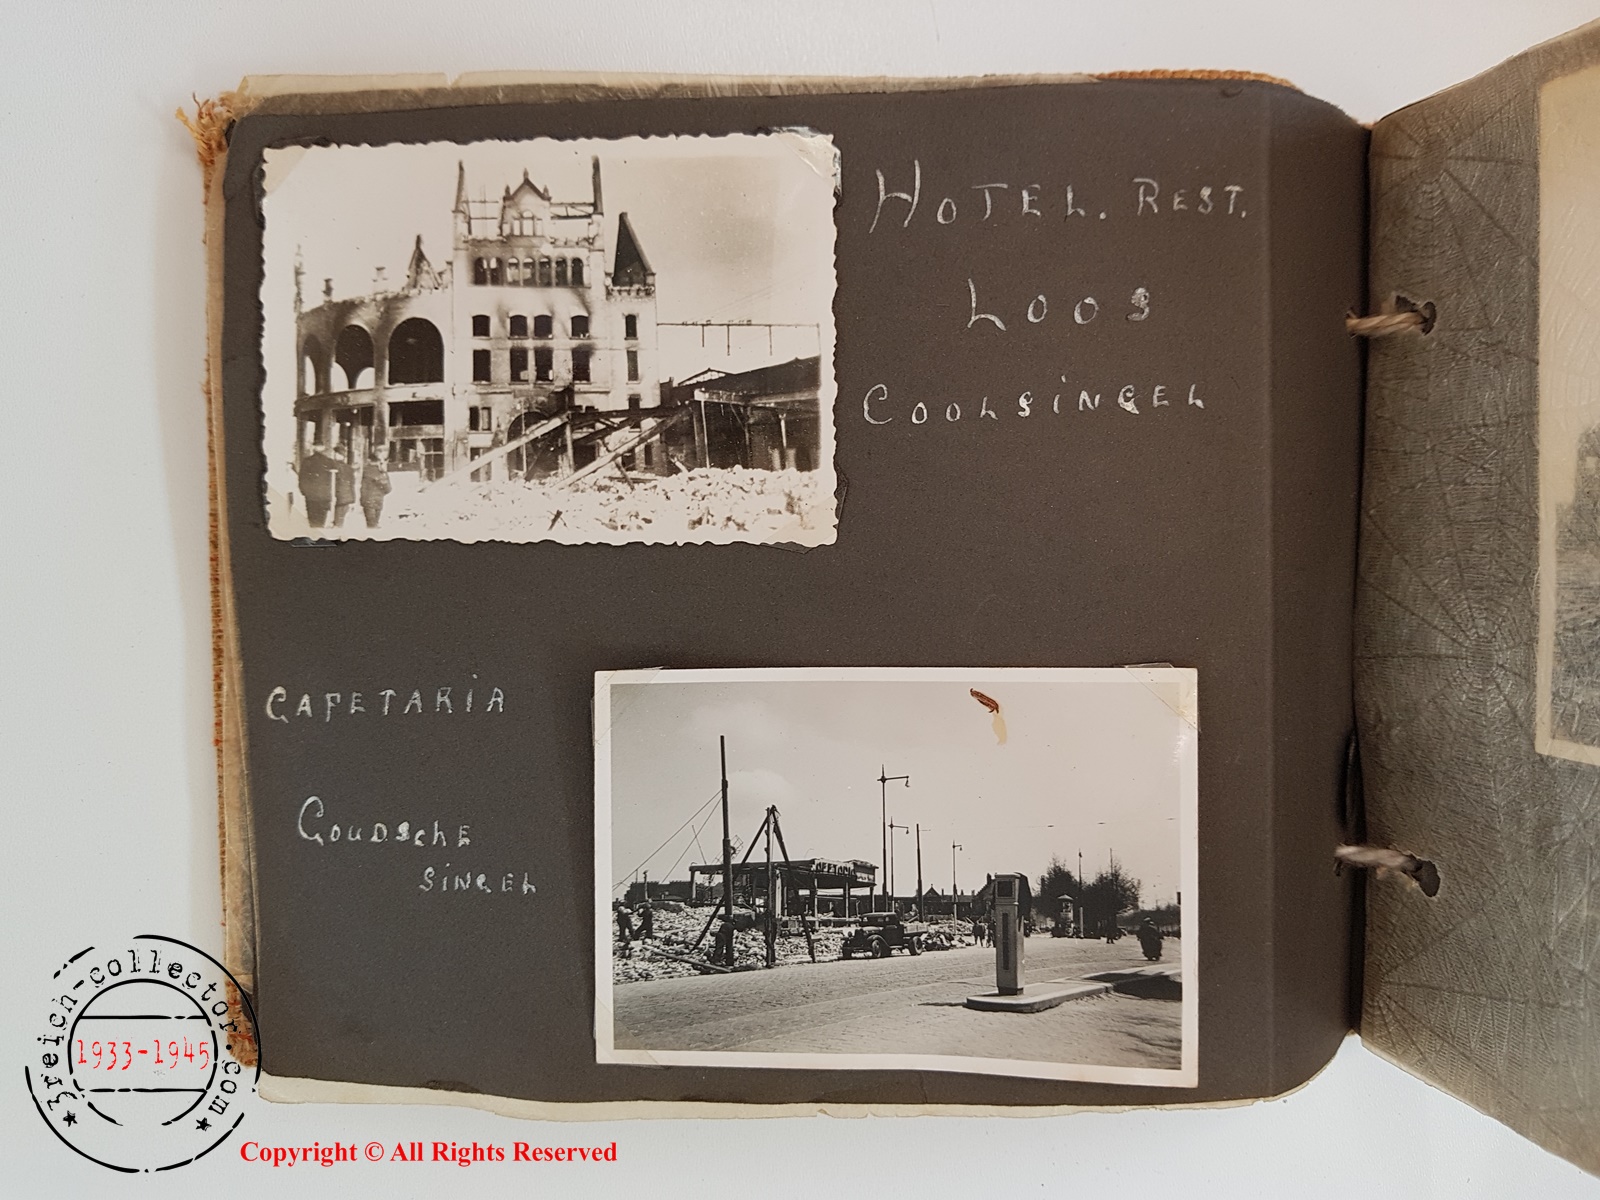 HOTEL. REST.
LOOS
COOLSINGEL
CAFETARIA
GOUDSCHE
SINGEL
3reich-collector.com
1933-1945
Copyright © All Rights Reserved